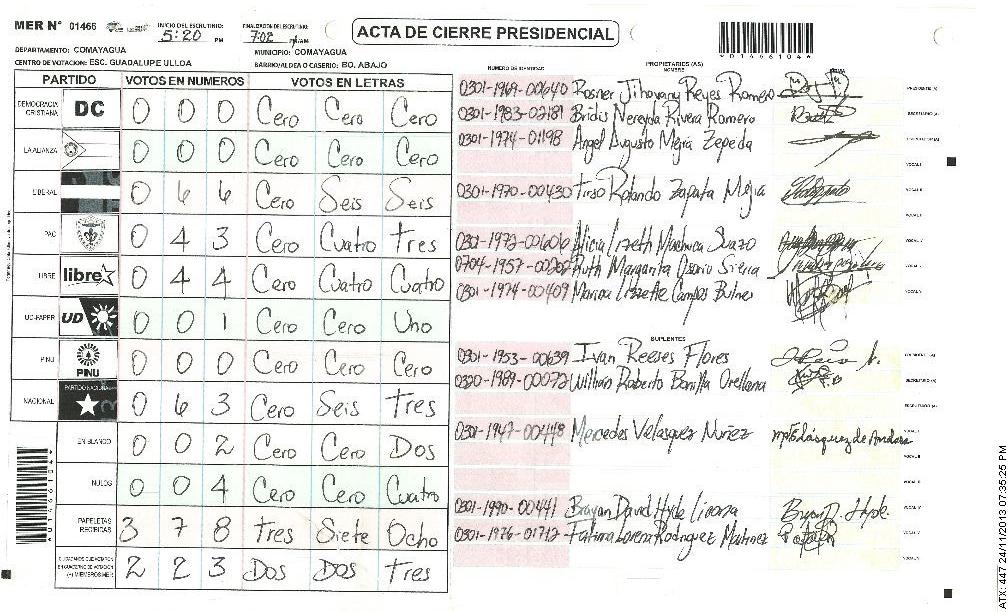 MER N° 01466 INICIO DEL ESCRUTINIO: 5:20 PM FINALIZACION DEL ESCRUTINIO: 7:02 PM
ACTA DE CIERRE PRESIDENCIAL
*01466104*
DEPARTAMENTO: COMAYAGUA MUNICIPIO: COMAYAGUA
CENTRO DE VOTACION: ESC. GUADALUPE ULLOA BARRIO/ALDEA O CASERIO: BO. ABAJO
PARTIDO VOTOS EN NUMEROS VOTOS EN LETRAS
DEMOCRACIA CRISTIANA DC 0 0 0 Cero Cero Cero
LA ALIANZA 0 0 0 Cero Cero Cero
LIBERAL 0 6 6 Cero Seis Seis
PAC 0 4 3 Cero Cuatro tres
LIBRE libre 0 4 4 Cero Cuatro Cuatro
UD-FAPER UD 0 0 1 Cero Cero Uno
PINU PINU 0 0 0 Cero Cero Cero
NACIONAL PARTIDO NACIONAL 0 6 3 Cero Seis tres
EN BLANCO 0 0 2 Cero Cero Dos
NULOS 0 0 4 Cero Cero Cuatro
PAPELETAS RECIBIDAS 3 7 8 tres Siete Ocho
CIUDADANOS QUE VOTARON EN CUADERNO DE VOTACION (+) MIEMBROS MER 2 2 3 Dos Dos tres
NUMERO DE IDENTIDAD PROPIETARIOS (AS) NOMBRE FIRMA
0301-1969-00640 Rosner Jihovany Reyes Romero PRESIDENTE (A)
0301-1983-02181 Bridis Nereyda Rivera Romero SECRETARIO (A)
0301-1974-01198 Angel Augusto Mejia Zepeda
VOCAL I
0301-1970-00430 Tirso Rolando Zapata Mejia VOCAL II
VOCAL III
0301-1972-00606 Alicia Lizeth Machuca Suazo VOCAL IV
0704-1957-00202 Ruth Margarita Osorio Sierra
0301-1974-00409 Marina Lizzette Campos Bulnes
SUPLENTES
0301-1953-00639 Ivan Reeses Flores
0320-1989-00072 Willian Roberto Bonilla Orellana SECRETARIO (A)
0301-1947-00448 Mercedes Velasquez Nuñez
0301-1990-00441 Brayan David Hyde Licona Bryan D. Hyde
0301-1976-01712 Fatima Lorena Rodriguez Martinez
*01466104*
ATX: 447 24/11/2013 07:35:25 PM